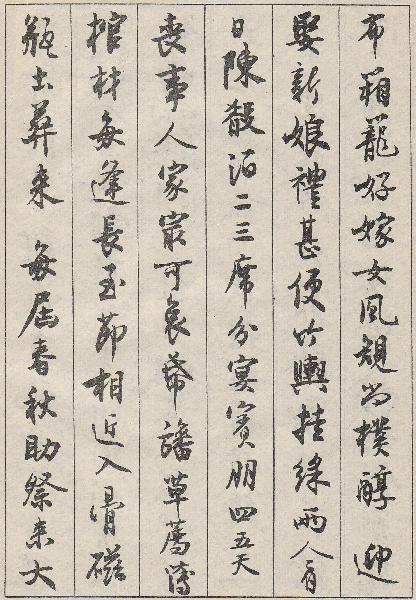 布箱籠好嫁女風規尚樸醇 迎
娶新娘禮甚便竹輿掛綵兩人肩
日陳殽酒二三席分宴賓朋四五天
喪事人家最可哀草薦薄
棺材每逢長至節相近入骨磁
瓶土葬來 每屆春秋助祭來大